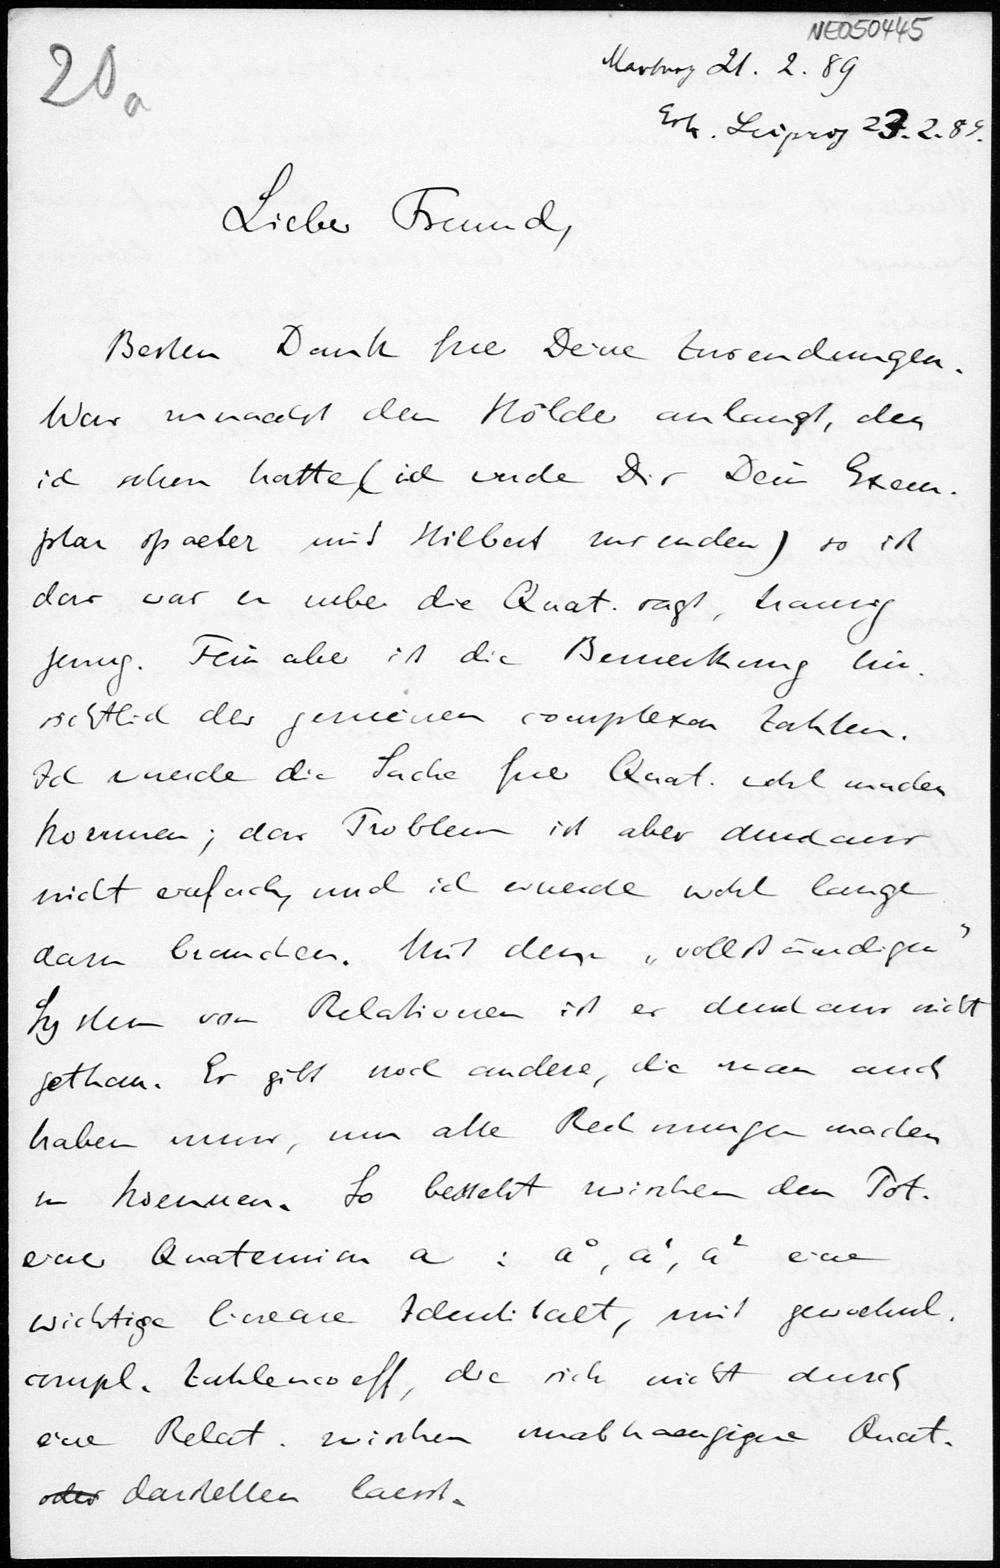 NE050445
20a
Marburg 21. 2. 89
Erh. Leipzig 23. 2. 89.
Lieber Freund,
Besten Dank fuer Deine Zusendungen.
Was zunaechst den Hölder anlangt, den
ich schon hatte (ich werde Dir Dein Exem-
plar spaeter mit Hilbert zusenden) so ist
das was er ueber die Quat. sagt, traurig
genug. Fein aber ist die Bemerkung hin-
sichtlich der gemeinen complexen Zahlen.
Ich wuerde die Sache fuer Quat. wohl machen
koennen; das Problem ist aber durchaus
nicht einfach, und ich wuerde wohl lange
dazu brauchen. Mit dem „vollständigen”
System von Relationen ist es durchaus nicht
gethan. Es gibt noch andere, die man auch
haben muss, um alle Rechnungen machen
zu koennen. So besteht zwischen den Pot.
einer Quaternion a : a⁰, a¹, a² eine
wichtige lineare Identitaet, mit gewoehnl.
compl. Zahlencoeff, die sich nicht durch
eine Relat. zwischen unabhaengigen Quat.
oder darstellen laesst.